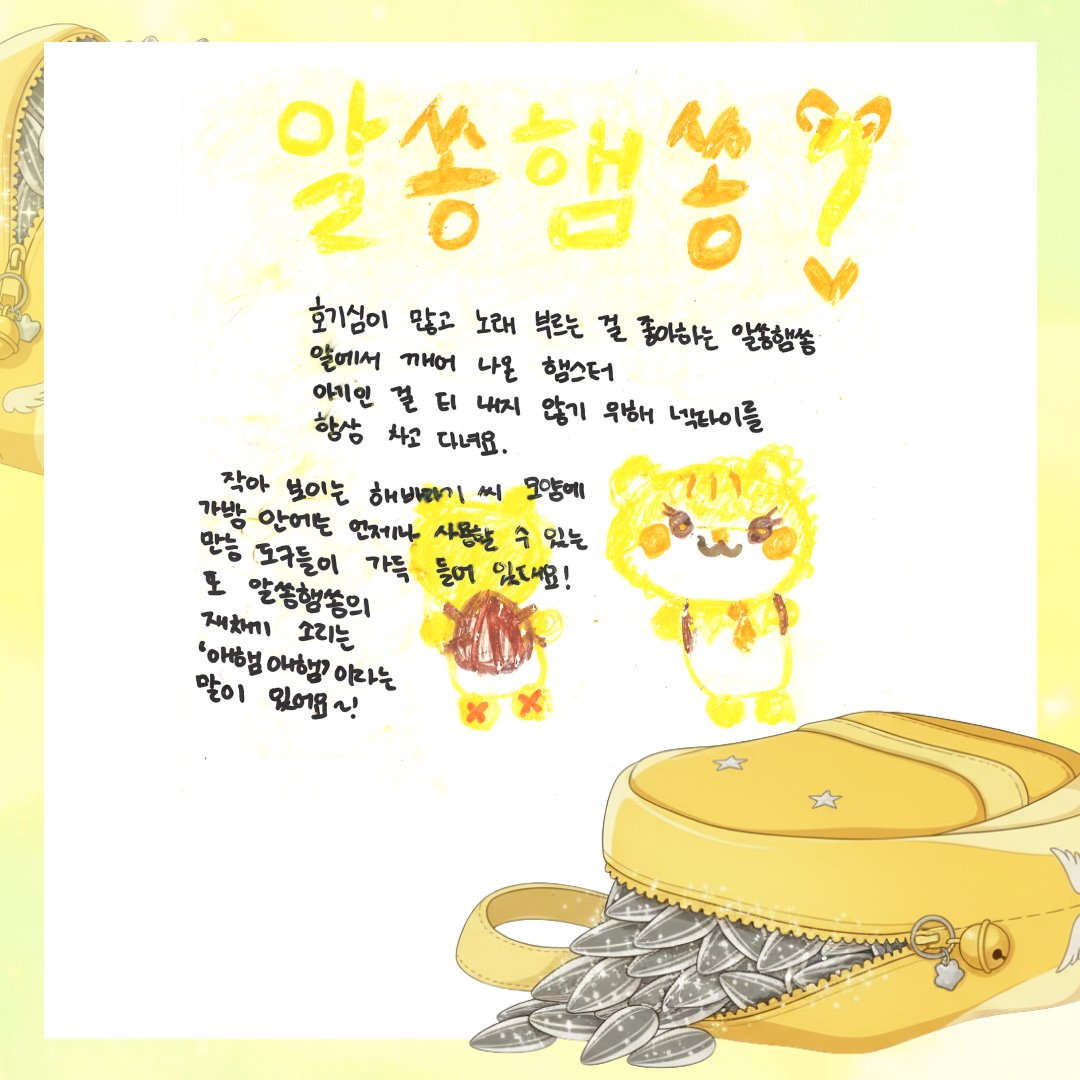 알쏭햄쏭?
호기심이 많고 노래 부르는 걸 좋아하는 알쏭햄쏭
알에서 깨어 나온 햄스터
아기인 걸 티 내지 않기 위해 넥타이를
항상 차고 다녀요.
작아 보이는 해바라기 씨 모양에
가방 안에는 언제나 사용할 수 있는
만능 도구들이 가득 들어 있대요!
또 알쏭햄쏭의
재채기 소리는
'애햄 애햄' 이라는
말이 있어요~!